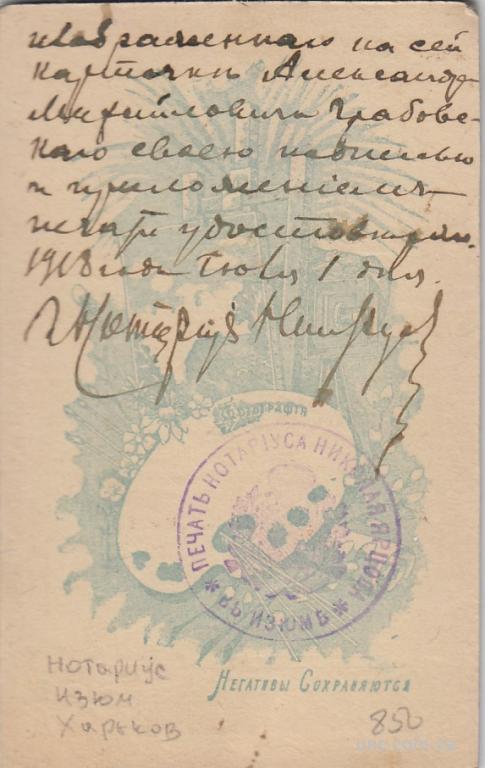 изображеннаго на сей
карточке Александра
Михайловича Грабовс-
каго своею подписью
и приложеніемъ
печати удостоверяю.
1918 года Іюня 1 дня.
Нотаріус
Фотографія
ПЕЧАТЬ НОТАРІУСА НИКОЛАЯ
* ВЪ ИЗЮМѢ *
Негативы Сохраняются
Нотариус
Изюм
Харьков
850